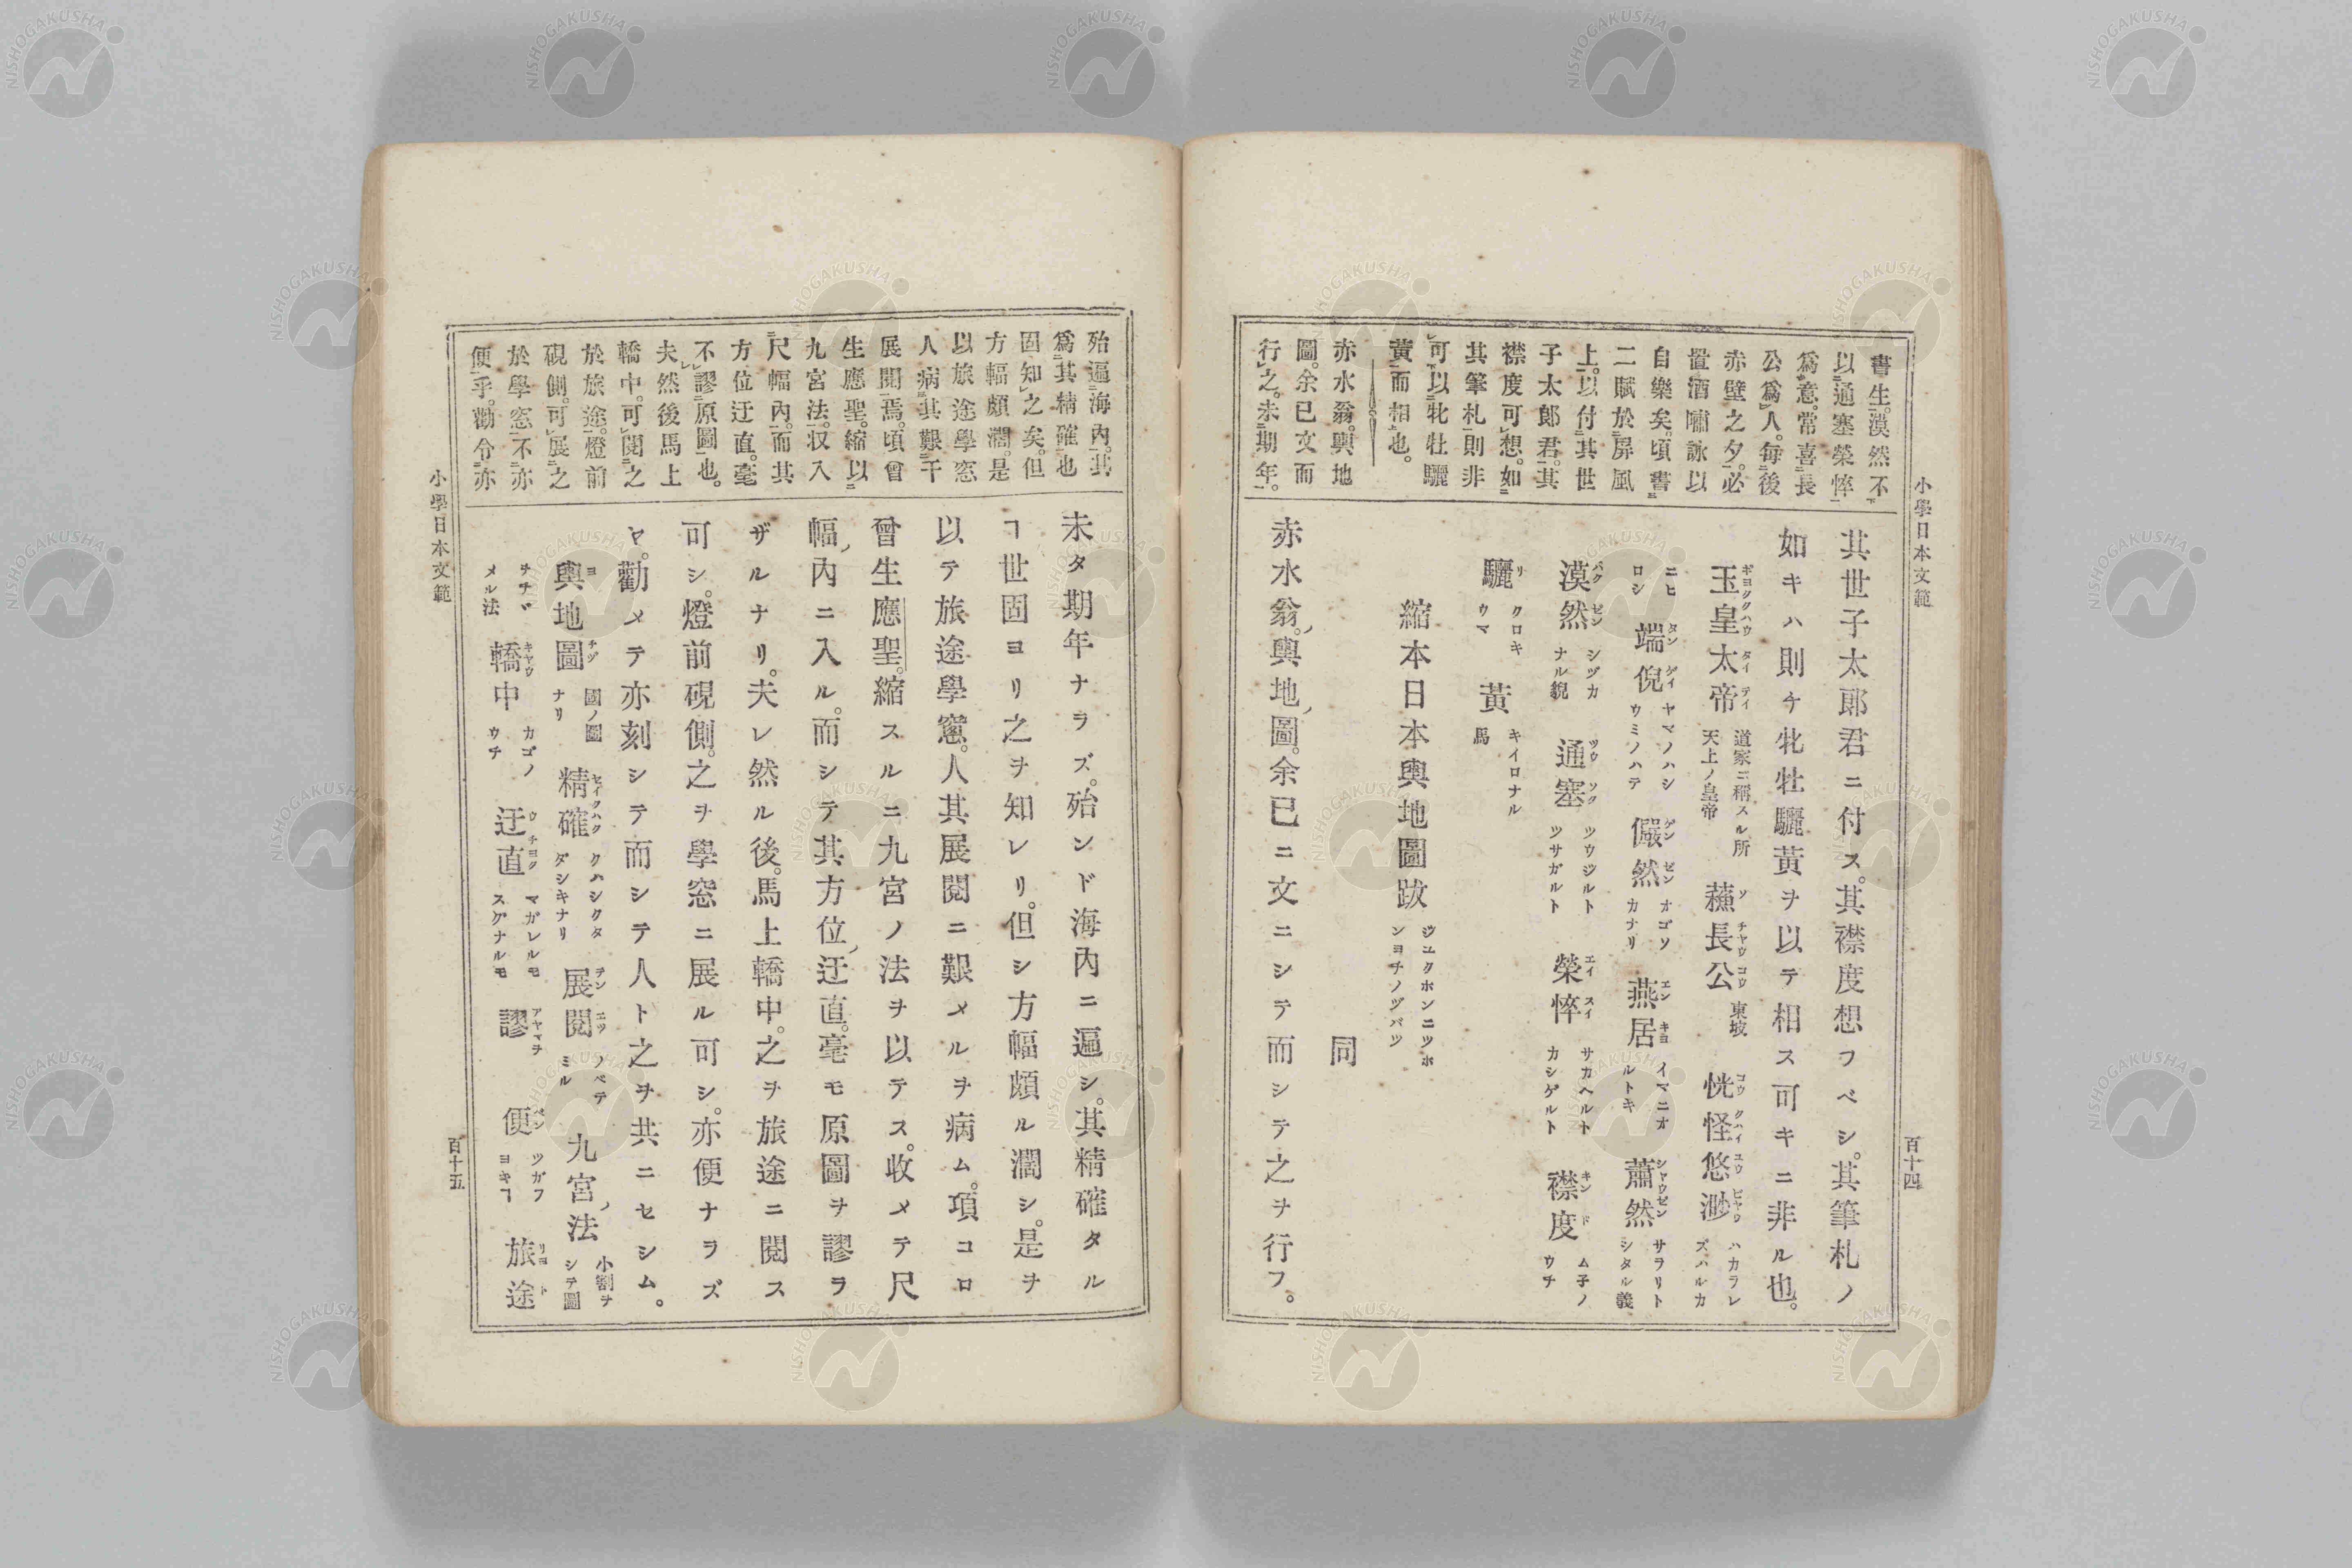 小學日本文範
百十四
書生。漠然不
以通塞榮悴
爲意。常喜長
公爲人。每後
赤壁之夕。必
置酒嘯詠以
自樂矣。頃書
二賦於屛風
上。以付其世
子太郎君。其
襟度可想。如
其筆札則非
可以牝牡驪
黃而相也。
赤水翁。輿地
圖。余已文而
行之。未期年。
其世子太郎君ニ付ス。其襟度想フベシ。其筆札ノ
如キハ則チ牝牡驪黃ヲ以テ相ス可キニ非ル也。
玉皇太帝 道家ニ稱スル所天上ノ皇帝 蘓長公 東坡 恍怪悠渺 ハカラレズハルカ
ニヒロシ 端倪 ヤマノハシウミノハテ 儼然 オゴソカナリ 燕居 イマニオルトキ 蕭然 サラリトシタル義
漠然 シヅカナル貎 通塞 ツウジルトツサガルト 榮悴 サカヘルトカシゲルト 襟度 ム子ノウチ
驪 クロキウマ 黃 キイロナル馬
縮本日本輿地圖跋 シユクホンニツホンヨチノヅバツ
同
赤水翁ノ。輿地ノ圖。余已ニ文ニシテ而シテ之ヲ行フ。
殆遍海內。其
爲其精確也
固知之矣。但
方輻頗濶。是
以旅途學窓
人病其艱于
展閱焉。頃曾
生應聖。縮以
九宮法。収入
尺幅內。而其
方位迂直。毫
不謬原圖也。
夫然後馬上
轎中。可閱之
於旅途。燈前
硯側。可展之
於學窓。不亦
便乎。勸令亦
未タ期年ナラズ。殆ンド海內ニ遍シ。其精確タル
ヿ世固ヨリ之ヲ知レリ。但シ方幅頗ル濶シ。是ヲ
以テ旅途學窻。人其展閱ニ艱メルヲ病ム。項コロ
曾生應聖。縮スルニ九宮ノ法ヲ以テス。收メテ尺
幅ノ內ニ入ル。而シテ其方位ノ迂直。毫モ原圖ヲ謬ラ
ザルナリ。夫レ然ル後。馬上轎中。之ヲ旅途ニ閱ス
可シ。燈前硯側。之ヲ學窓ニ展ル可シ。亦便ナラズ
ヤ。勸メテ亦刻シテ而シテ人ト之ヲ共ニセシム。
輿地圖 國ノ圖ナリ 精確 クハシクタダシキナリ 展閱 ノベテミル 九宮ノ法 小割ヲシテ圖
ヲチヾメル法 轎中 カゴノウチ 迂直 マガレルモスグナルモ 謬 アヤマチ 便 ツガフヨキヿ 旅途
小學日本文範
百十五